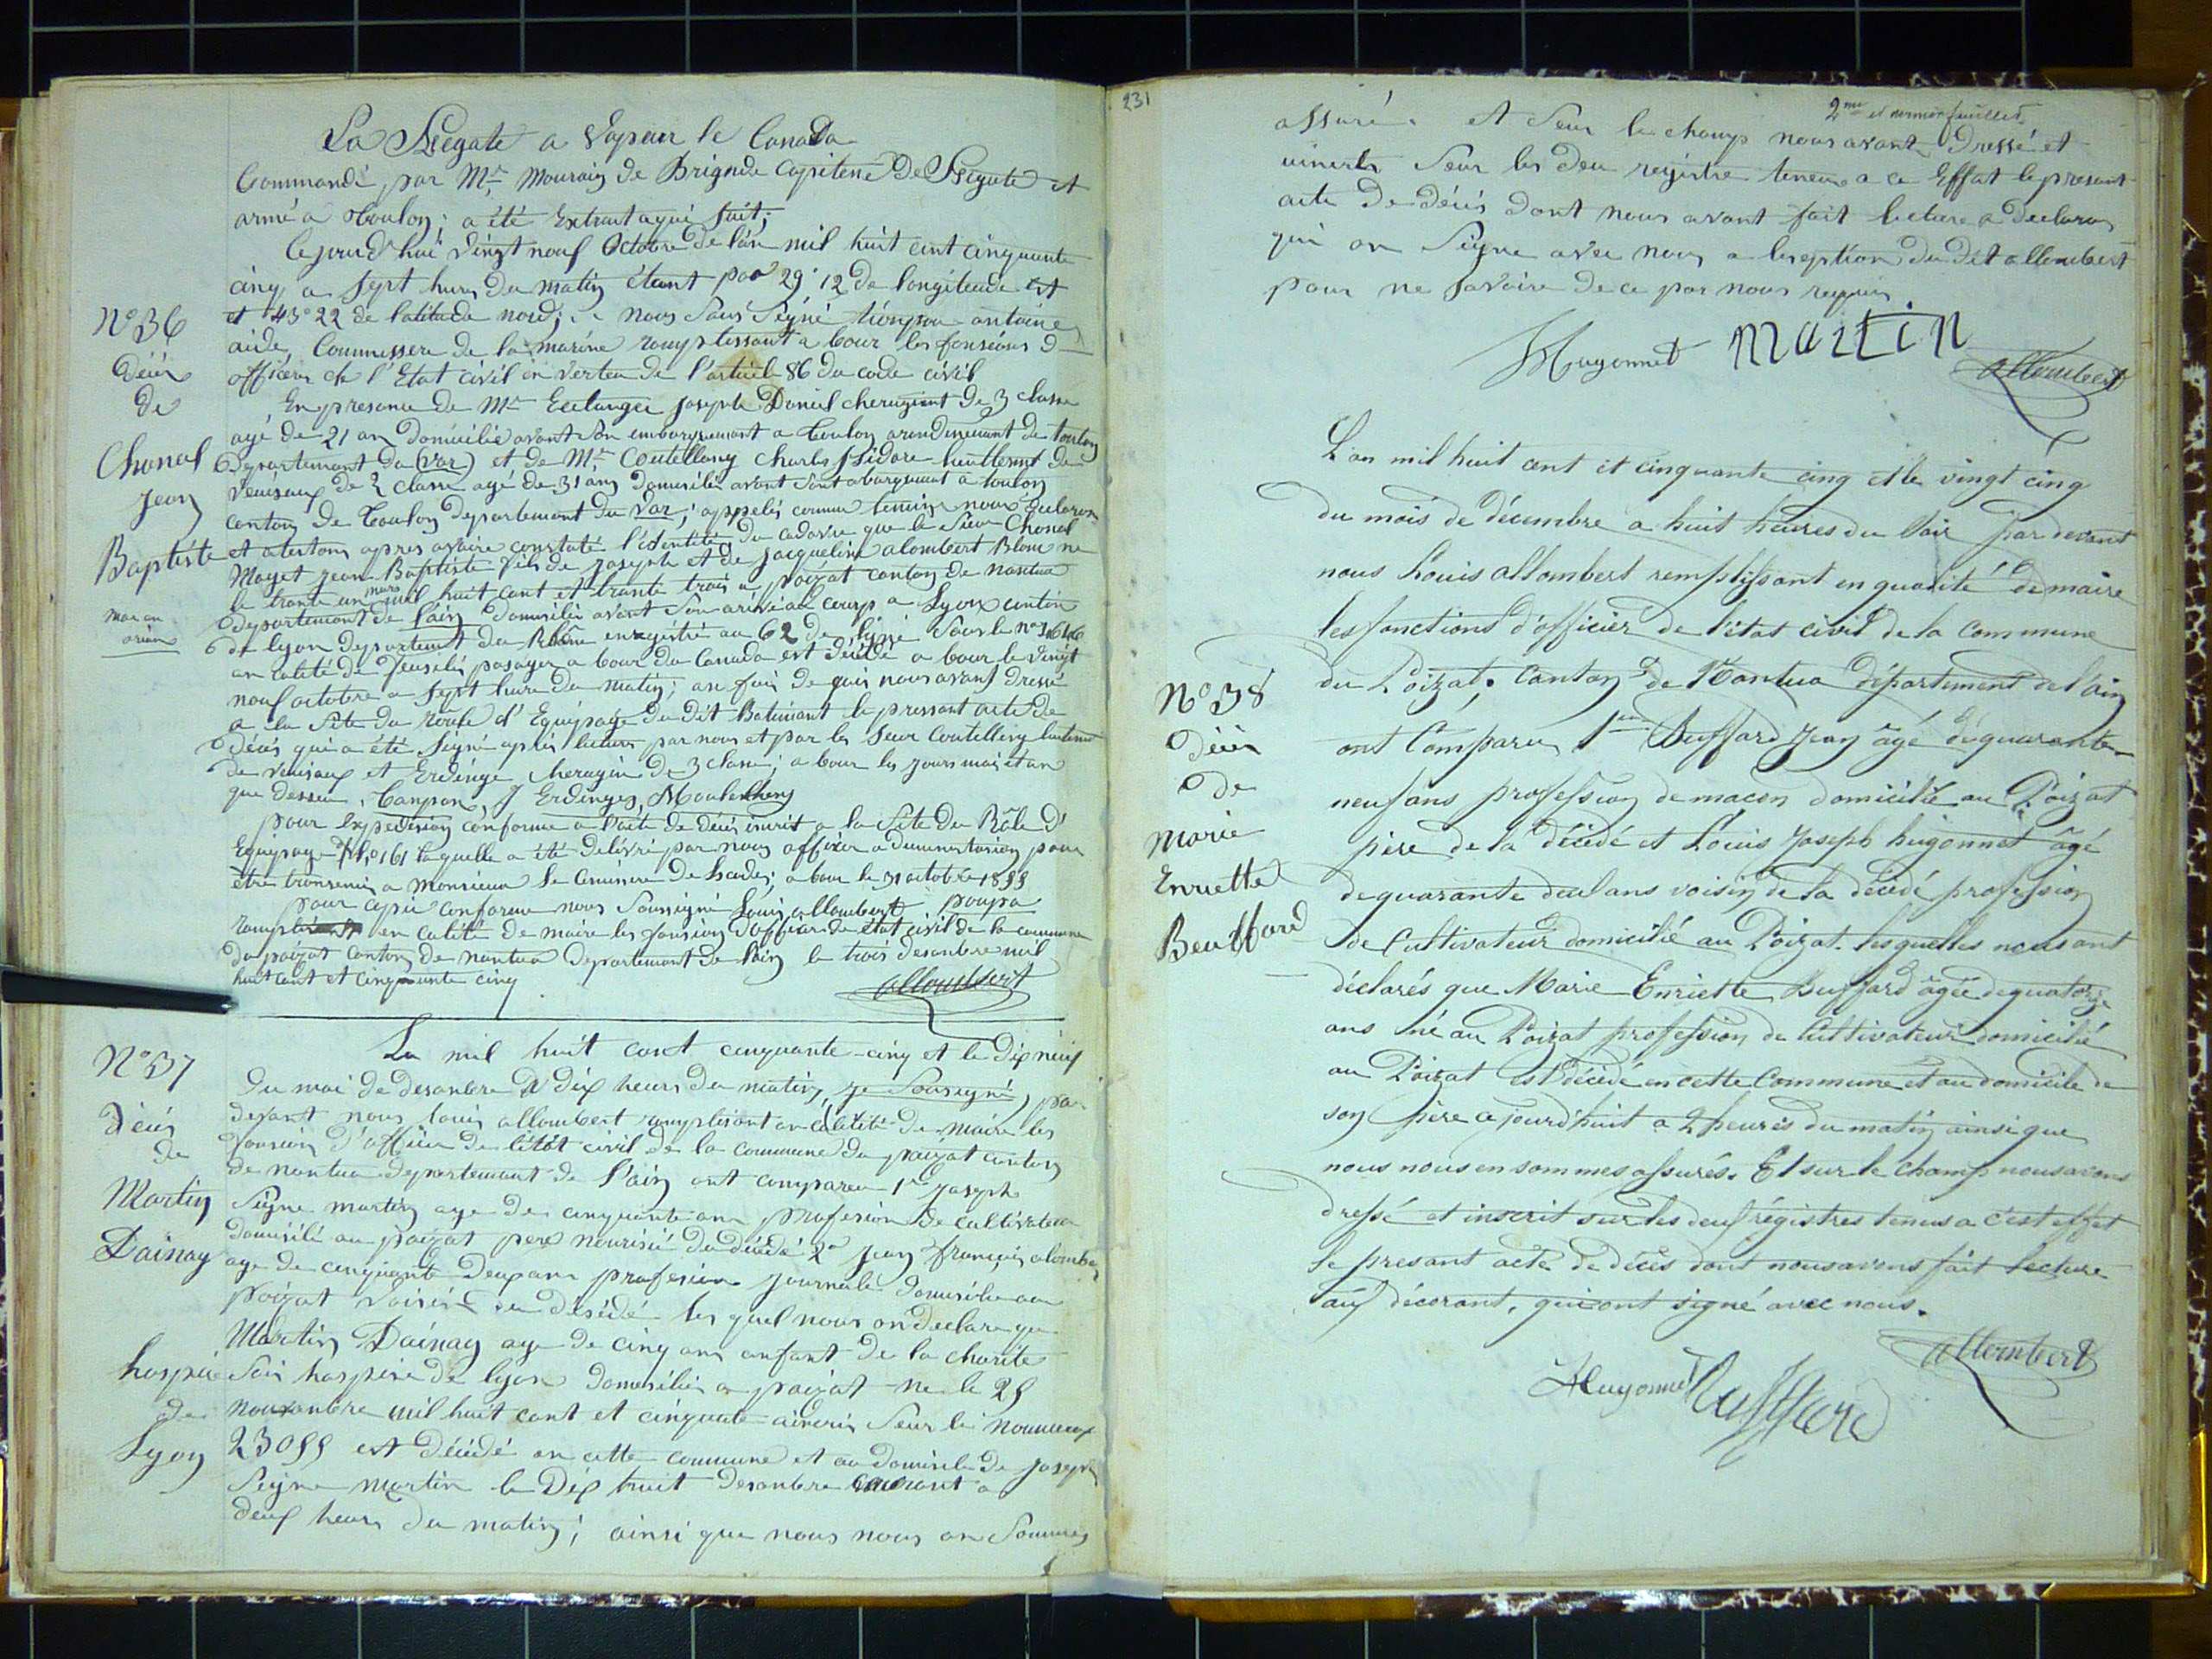 La Fregate a Vapeur le Canada
Commandé par Mr Mourain de Brignde Capitene De Fregate et
armé a Toulon; a été Extrait aqui suit;
Ce jourd'hui Vingt nouf Octobre De l'an mil huit cent cinquante
cinq a sept hures Du matin étant par 29° 12 De longiteude Est
et 43° 22 de latitude nord; nous SousSégné antoine
aide Commessere de la marine ramplissant a bour les fonsions d
officier de l'Etat civil en Vertu De l'artiele 86 Du code civil
En presance De Mr joseph Daniel cherugient De 3 classe
agé de 21 an Domicilié avant son embarquemant a Toulon arondissement de toulon
Departemant Du (Var) et De Mr Coutelleng Charles Isidore lieutlenent De
Veuiseaux De 2 classe agé De 31 ans Domicilié avant Sont abarquement a toulon
canton De Toulon Departement Du Var; appelés comme temoin nous Declaron
et atestons apres avoire constaté l'identité Du cadavre que le Sieur Chonal
Moget Jean Baptiste fils De Joseph et De Jacqueline alombert Blanc ne
le trante un mars mil huit cent et trante trois a poizat canton de nantua
Departement De l'ain Domicilié avant Son arivé au corps a Lyon canton
De lyon Departement Du Rhône enregistré au 62 De ligne Sous le n° 1646
an calité De fuselié pasager a bour Du Canada est Décédé a bour le Vingt
nouf octobre a sept hure Du matin; an foi De quoi nous avons Dressé
a la Site Du roule d'Equipage Du Dit Batimant le pressant acte De
Décés qui a été signé aprés lecture par nous et par les Sieur Coutelleng lieutenant
De Veuiseaux et Erdinge cherugien De 3 classe; a bour les jours mois et an
que Dessus. J Erdinger,
pour Expedision conforme a l'acte De Décés inscrit a la Site Du Rôle D'
Equipage N° 161 laquelle a été Delivré par nous officier a Dministrasion pour
être transmis a Monsieur le a bour le 31 octobre 1855
pour copie conforme nous Sousigné Louis allombert poupa
ramplissant en calité De maire les fonsions D'officier De état civil de la commune
Du poizat canton De nantua Departement De l'ain le trois Desanbre mil
huit cent et cinquante cinq
allombert
N° 36
Décés
De
Chonal
Jean
Baptiste
mor an
orian
N° 37
Décés
de
Martin
Dainay
hospice
de
Lyon
La mil huit cent cinquante-cinq et le Dix neuf
Du moi De Desanbre a Dix heures Du matin, je Sousigné, par
devant nous louis allombert ramplissant an calitté De maire les
fonsion D'officier De l'état civil De la commune Du poizat canton
De nantua Departemant De l'ain ont comparru 1er Joseph
Seigne martin age De cinquante ans profesion De cultivateur
Domicilié au poizat pere nourisié Du Décédé 2e Jean françois alombert
age De cinquante Deux ans profesion journalié Domicilié au
poizat Voisin Du Décédé les quel nous on Declare que
Martin Dainay age De cinq ans anfant De la charité
Soir hospise De lyon Domicilié a poizat ne le 25
nouvanbre mil huit cent et cinquante ainscris Seur le noumeros
23055 est Décédé an cette commune et au Domicile De joseph
Seigne martin le Dix huit Desanbre courant a
deux heures Du matin; ainsi que nous nous an Sommes
231
2me et dernier feuillet
assuré. et Seur le champ nous avont Dressé et
ainscrts Seur les Deu registre teneus a ce Effat le presant
acte De Décés Dont nous avont fait lecture a Declaran
qui on Signe avec nous a lexeption Du Dit allombert
pour ne Savoire De ce par nous requis.
Hugonnet Martin
allombert
L'an mil huit cent et cinquante cinq et le vingt cinq
du mois de décembre a huit heures du Soir par devant
nous Louis allombert remplissant en qualité de maire
les fonctions d'officier de l'état civil de la Commune
du Poizat. Canton de Nantua département de l'ain
ont Comparu 1er Buffard Jean âgé dequarante
neuf ans profession de macon domicilié au Poizat
père de la décédé et Louis Joseph hugonnet âgé
dequarante deux ans voisin de la décédé profession
de Cultivateur domicilié au Poizat. lesquelles nous ont
déclarés que Marie Enriette Buffard âgée dequatorze
ans né au Poizat profession de Cultivateur domicilié
au Poizat est décédé en cette Commune et au domicile de
son père cejourd'huit a 2 heures du matin ainsi que
nous nous en sommes assurés. Et sur le champ nous avons
dressé et inscrit sur les deux régistres tenus a c'est effet
le presant acte de décès dont nous avons fait lecture
aux décerant, qui ont signé avec nous.
allombert
Hugonnet Buffard
N° 38
Décés
De
Marie
Enriette
Beuffard